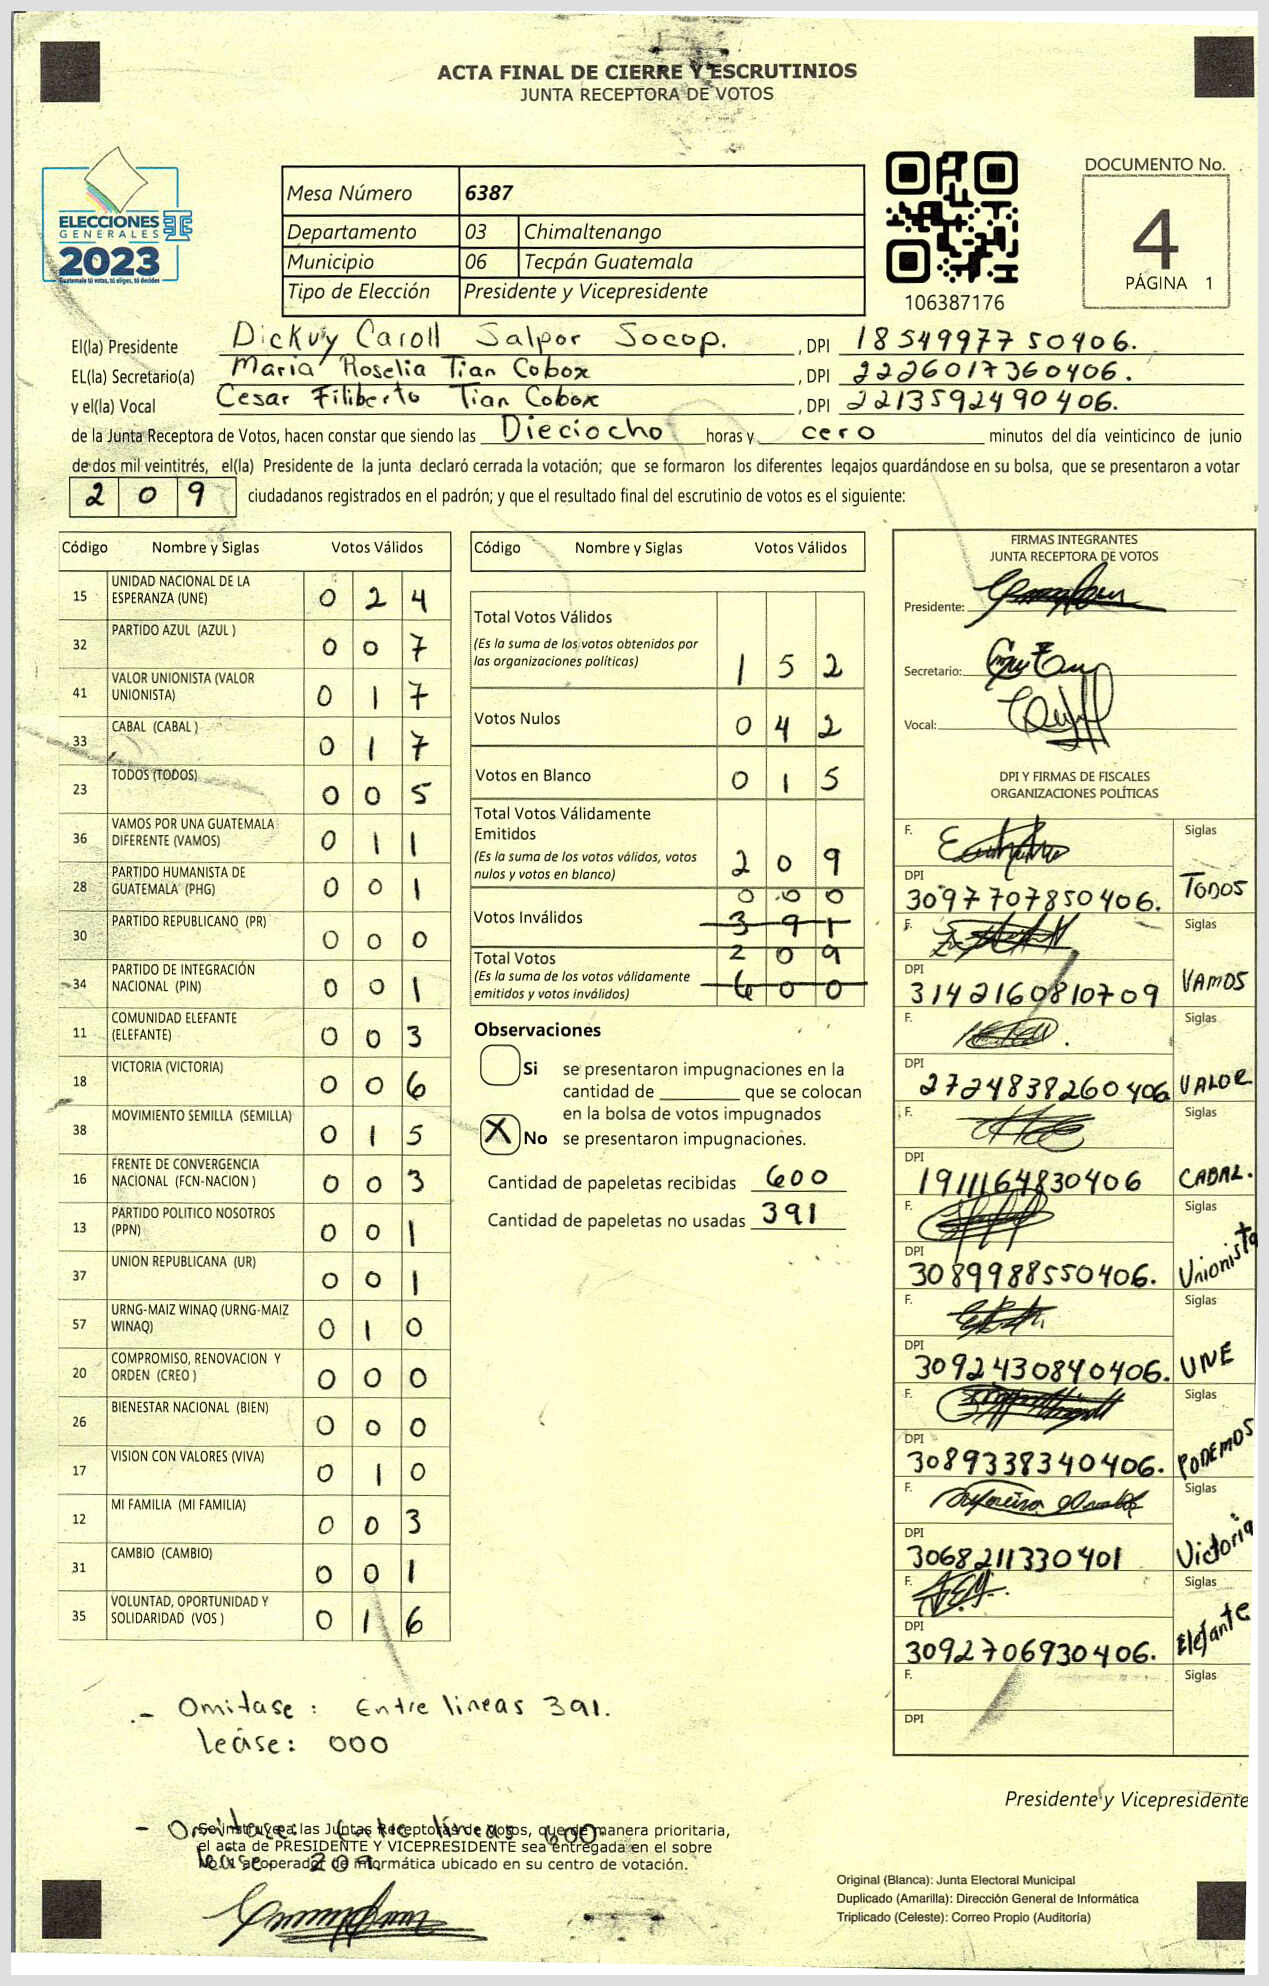 ACTA FINAL DE CIERRE Y ESCRUTINIOS
JUNTA RECEPTORA DE VOTOS
ELECCIONES
GENERALES
2023
Guatemala tú votas, tú eliges, tú decides
Mesa Número 6387
Departamento 03 Chimaltenango
Municipio 06 Tecpán Guatemala
Tipo de Elección Presidente y Vicepresidente
106387176
DOCUMENTO No.
4
PÁGINA 1
El(la) Presidente Dickvy Caroll Salpor Socop. , DPI 1854997750406.
EL(la) Secretario(a) Maria Roselia Tian Cobox , DPI 2226017360406.
y el(la) Vocal Cesar Filiberto Tian Cobox , DPI 2213592490406.
de la Junta Receptora de Votos, hacen constar que siendo las Dieciocho horas y cero minutos del día veinticinco de junio
de dos mil veintitrés, el(la) Presidente de la junta declaró cerrada la votación; que se formaron los diferentes legajos guardándose en su bolsa, que se presentaron a votar
209 ciudadanos registrados en el padrón; y que el resultado final del escrutinio de votos es el siguiente:
Código Nombre y Siglas Votos Válidos
15 UNIDAD NACIONAL DE LA ESPERANZA (UNE) 0 2 4
32 PARTIDO AZUL (AZUL ) 0 0 7
41 VALOR UNIONISTA (VALOR UNIONISTA) 0 1 7
33 CABAL (CABAL ) 0 1 7
23 TODOS (TODOS) 0 0 5
36 VAMOS POR UNA GUATEMALA DIFERENTE (VAMOS) 0 1 1
28 PARTIDO HUMANISTA DE GUATEMALA (PHG) 0 0 1
30 PARTIDO REPUBLICANO (PR) 0 0 0
34 PARTIDO DE INTEGRACIÓN NACIONAL (PIN) 0 0 1
11 COMUNIDAD ELEFANTE (ELEFANTE) 0 0 3
18 VICTORIA (VICTORIA) 0 0 6
38 MOVIMIENTO SEMILLA (SEMILLA) 0 1 5
16 FRENTE DE CONVERGENCIA NACIONAL (FCN-NACION ) 0 0 3
13 PARTIDO POLITICO NOSOTROS (PPN) 0 0 1
37 UNION REPUBLICANA (UR) 0 0 1
57 URNG-MAIZ WINAQ (URNG-MAIZ WINAQ) 0 1 0
20 COMPROMISO, RENOVACION Y ORDEN (CREO ) 0 0 0
26 BIENESTAR NACIONAL (BIEN) 0 0 0
17 VISION CON VALORES (VIVA) 0 1 0
12 MI FAMILIA (MI FAMILIA) 0 0 3
31 CAMBIO (CAMBIO) 0 0 1
35 VOLUNTAD, OPORTUNIDAD Y SOLIDARIDAD (VOS ) 0 1 6
Código Nombre y Siglas Votos Válidos
Total Votos Válidos
(Es la suma de los votos obtenidos por
las organizaciones políticas) 1 5 2
Votos Nulos 0 4 2
Votos en Blanco 0 1 5
Total Votos Válidamente
Emitidos
(Es la suma de los votos válidos, votos
nulos y votos en blanco) 2 0 9
0 0 0
Votos Inválidos 3 9 1
Total Votos 2 0 9
(Es la suma de los votos válidamente
emitidos y votos inválidos) 6 0 0
Observaciones
Si se presentaron impugnaciones en la
cantidad de ________ que se colocan
en la bolsa de votos impugnados
X No se presentaron impugnaciones.
Cantidad de papeletas recibidas 600
Cantidad de papeletas no usadas 391
FIRMAS INTEGRANTES
JUNTA RECEPTORA DE VOTOS
Presidente:
Secretario:
Vocal:
DPI Y FIRMAS DE FISCALES
ORGANIZACIONES POLÍTICAS
F. Siglas
DPI
3097707850406. TODOS
F. Siglas
DPI
3142160810709 VAMOS
F. Siglas
DPI
2724838260406 VALOR
F. Siglas
DPI
1911164830406 CABAL.
F. Siglas
DPI
3089988550406. Unionista
F. Siglas
DPI
3092430840406. UNE
F. Siglas
DPI
3089338340406. PODEMOS
F. Siglas
DPI
3068211330401 Victoria
F. Siglas
DPI
3092706930406. Elefante
F. Siglas
DPI
.- Omitase: Entre lineas 391.
Leáse: 000
- Omitase: Entre líneas 600
léase 209
Se instruye a las Juntas Receptoras de Votos, que de manera prioritaria,
el acta de PRESIDENTE Y VICEPRESIDENTE sea entregada en el sobre
No. 1 al operador de informática ubicado en su centro de votación.
Presidente y Vicepresidente
Original (Blanca): Junta Electoral Municipal
Duplicado (Amarilla): Dirección General de Informática
Triplicado (Celeste): Correo Propio (Auditoría)